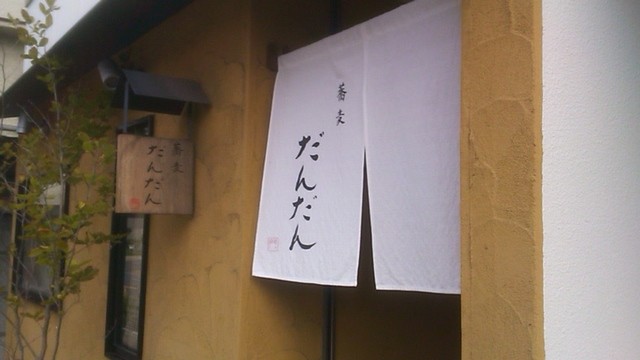 蕎麦
だんだん
蕎麦
だんだん